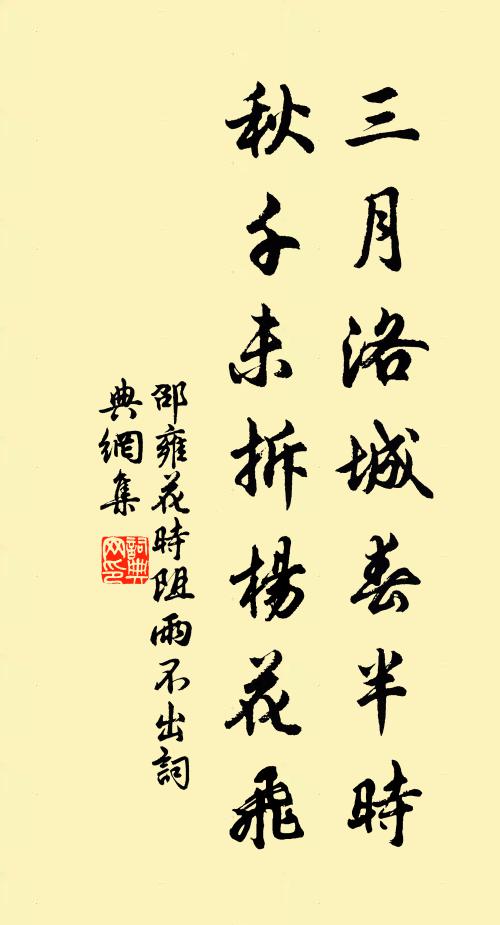 三月洛城春半時
秋千未拆楊花飛
邵雍花時阻雨不出詞
典網集
詞典
网印